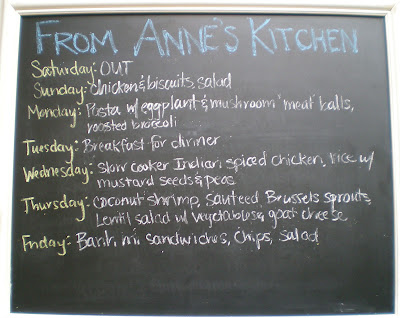 FROM ANNE'S KITCHEN
Saturday: OUT
Sunday: Chicken & biscuits, salad
Monday: Pasta w/ eggplant & mushroom "meat" balls,
roasted broccoli
Tuesday: Breakfast for dinner
Wednesday: Slow cooker Indian spiced chicken, rice w/
mustard seeds & peas
Thursday: Coconut shrimp, sauteed Brussels sprouts,
Lentil salad w/ vegetables & goat cheese
Friday: Banh mi sandwiches, chips, salad